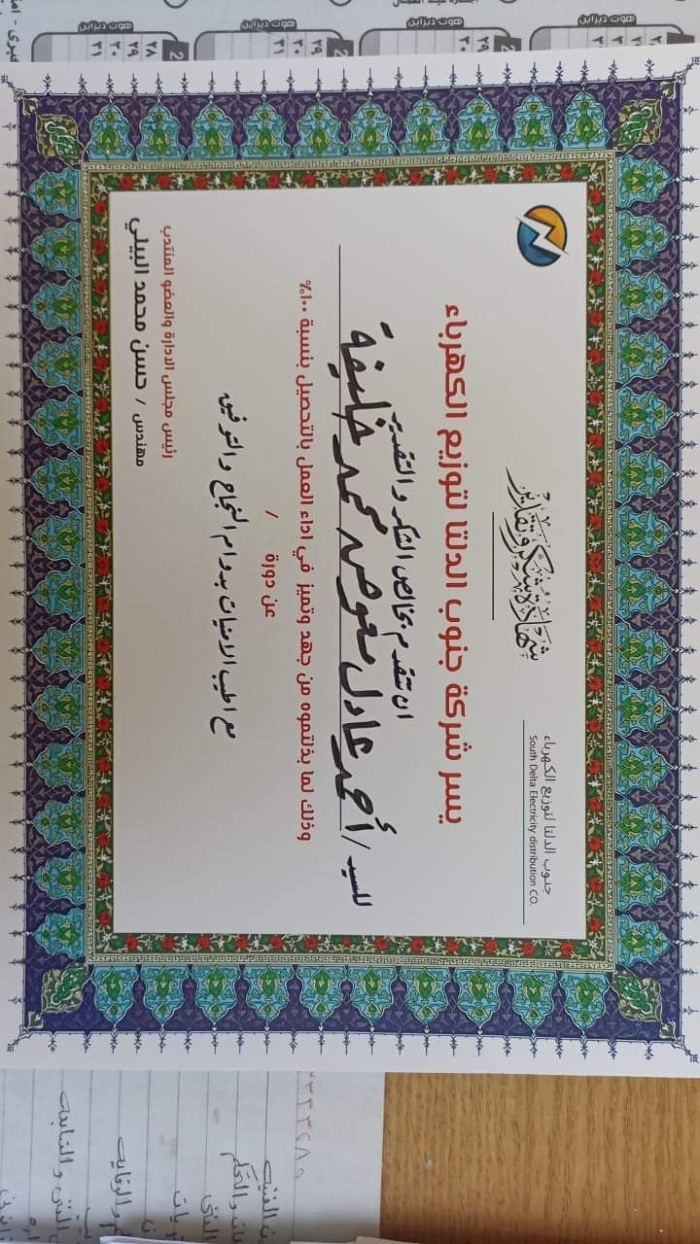 جنوب الدلتا لتوزيع الكهرباء
South Delta Electricity distribution CO.
شهادة شكر وتقدير
يسر شركة جنوب الدلتا لتوزيع الكهرباء
ان تتقدم بخالص الشكر والتقدير
للسيد / أحمد عادل معوض محمد خليفة
وذلك لما بذلتموه من جهد وتميز في اداء العمل بالتحصيل بنسبة ١٠٠%
عن دورة /
مع اطيب الامنيات بدوام النجاح والتوفيق
ائيس مجلس الادارة والعضو المنتدب
مهندس / حسن محمد البيلي
هوت ديزاين
هوت ديزاين
هوت ديزاين
هوت ديزاين